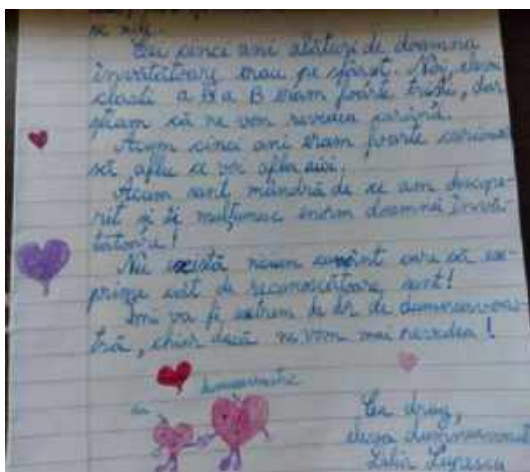 Cei cinci ani alături de doamna
învățătoare erau pe sfârșit. Noi, elevii
clasei a a B eram foarte triști, dar
știam că ne vom revedea
Acum cinci ani eram foarte
să aflu ce voi afla aici.
Acum sunt mândră de ce am descope-
rit și îi mulțumesc enorm doamnei învă-
țătoare!
Nu există niciun cuvânt care să ex-
prime cât de recunoscătoare sunt!
Îmi va fi extrem de dor de dumneavoas-
tră, chiar dacă ne vom mai revedea!
dumneavoastră
eu
Cu drag,
eleva dumneavoastră
Lupescu